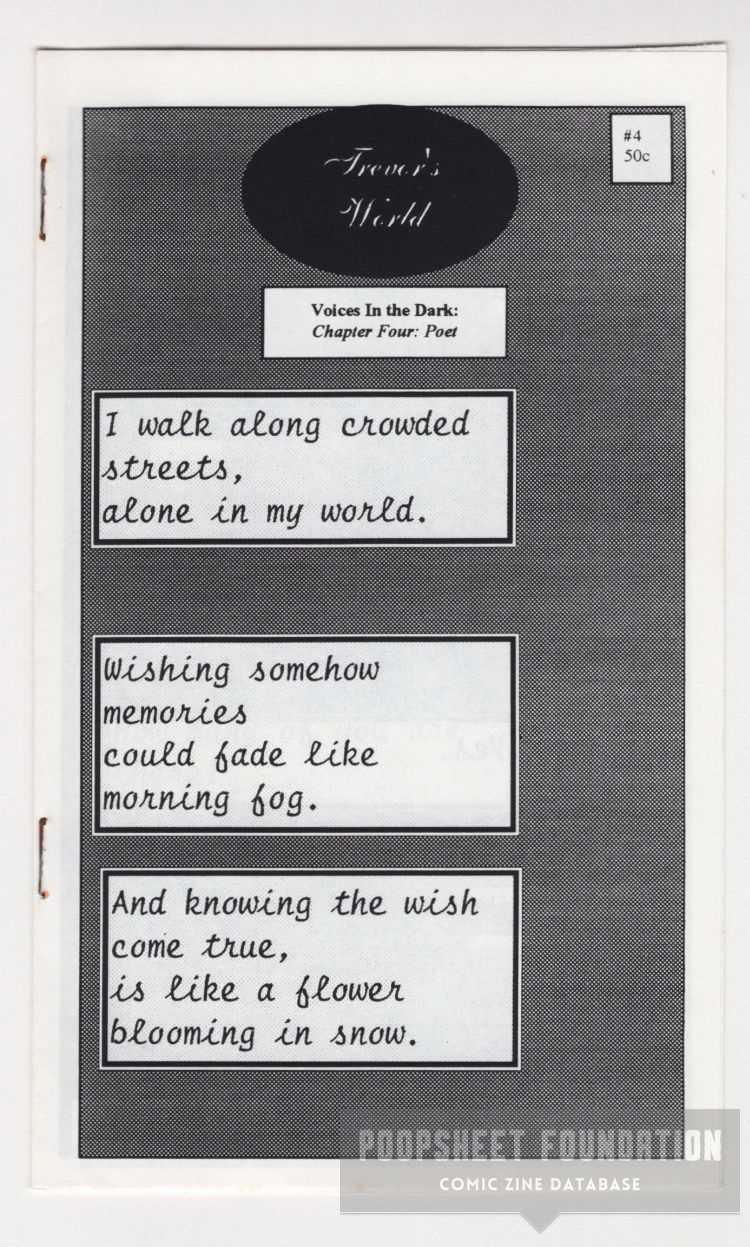 Trevor's
World
#4
50c
Voices In the Dark:
Chapter Four: Poet
I walk along crowded
streets,
alone in my world.
Wishing somehow
memories
could fade like
morning fog.
And knowing the wish
come true,
is like a flower
blooming in snow.
POOPSHEET FOUNDATION
COMIC ZINE DATABASE